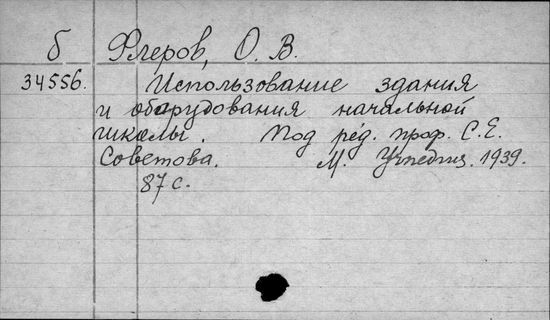 б Флеров, О. В.
34556. Использование здания
и оборудования начальной
школы. Под ред. проф. С.Е.
Советова. М. Учпедгиз. 1939.
87 с.